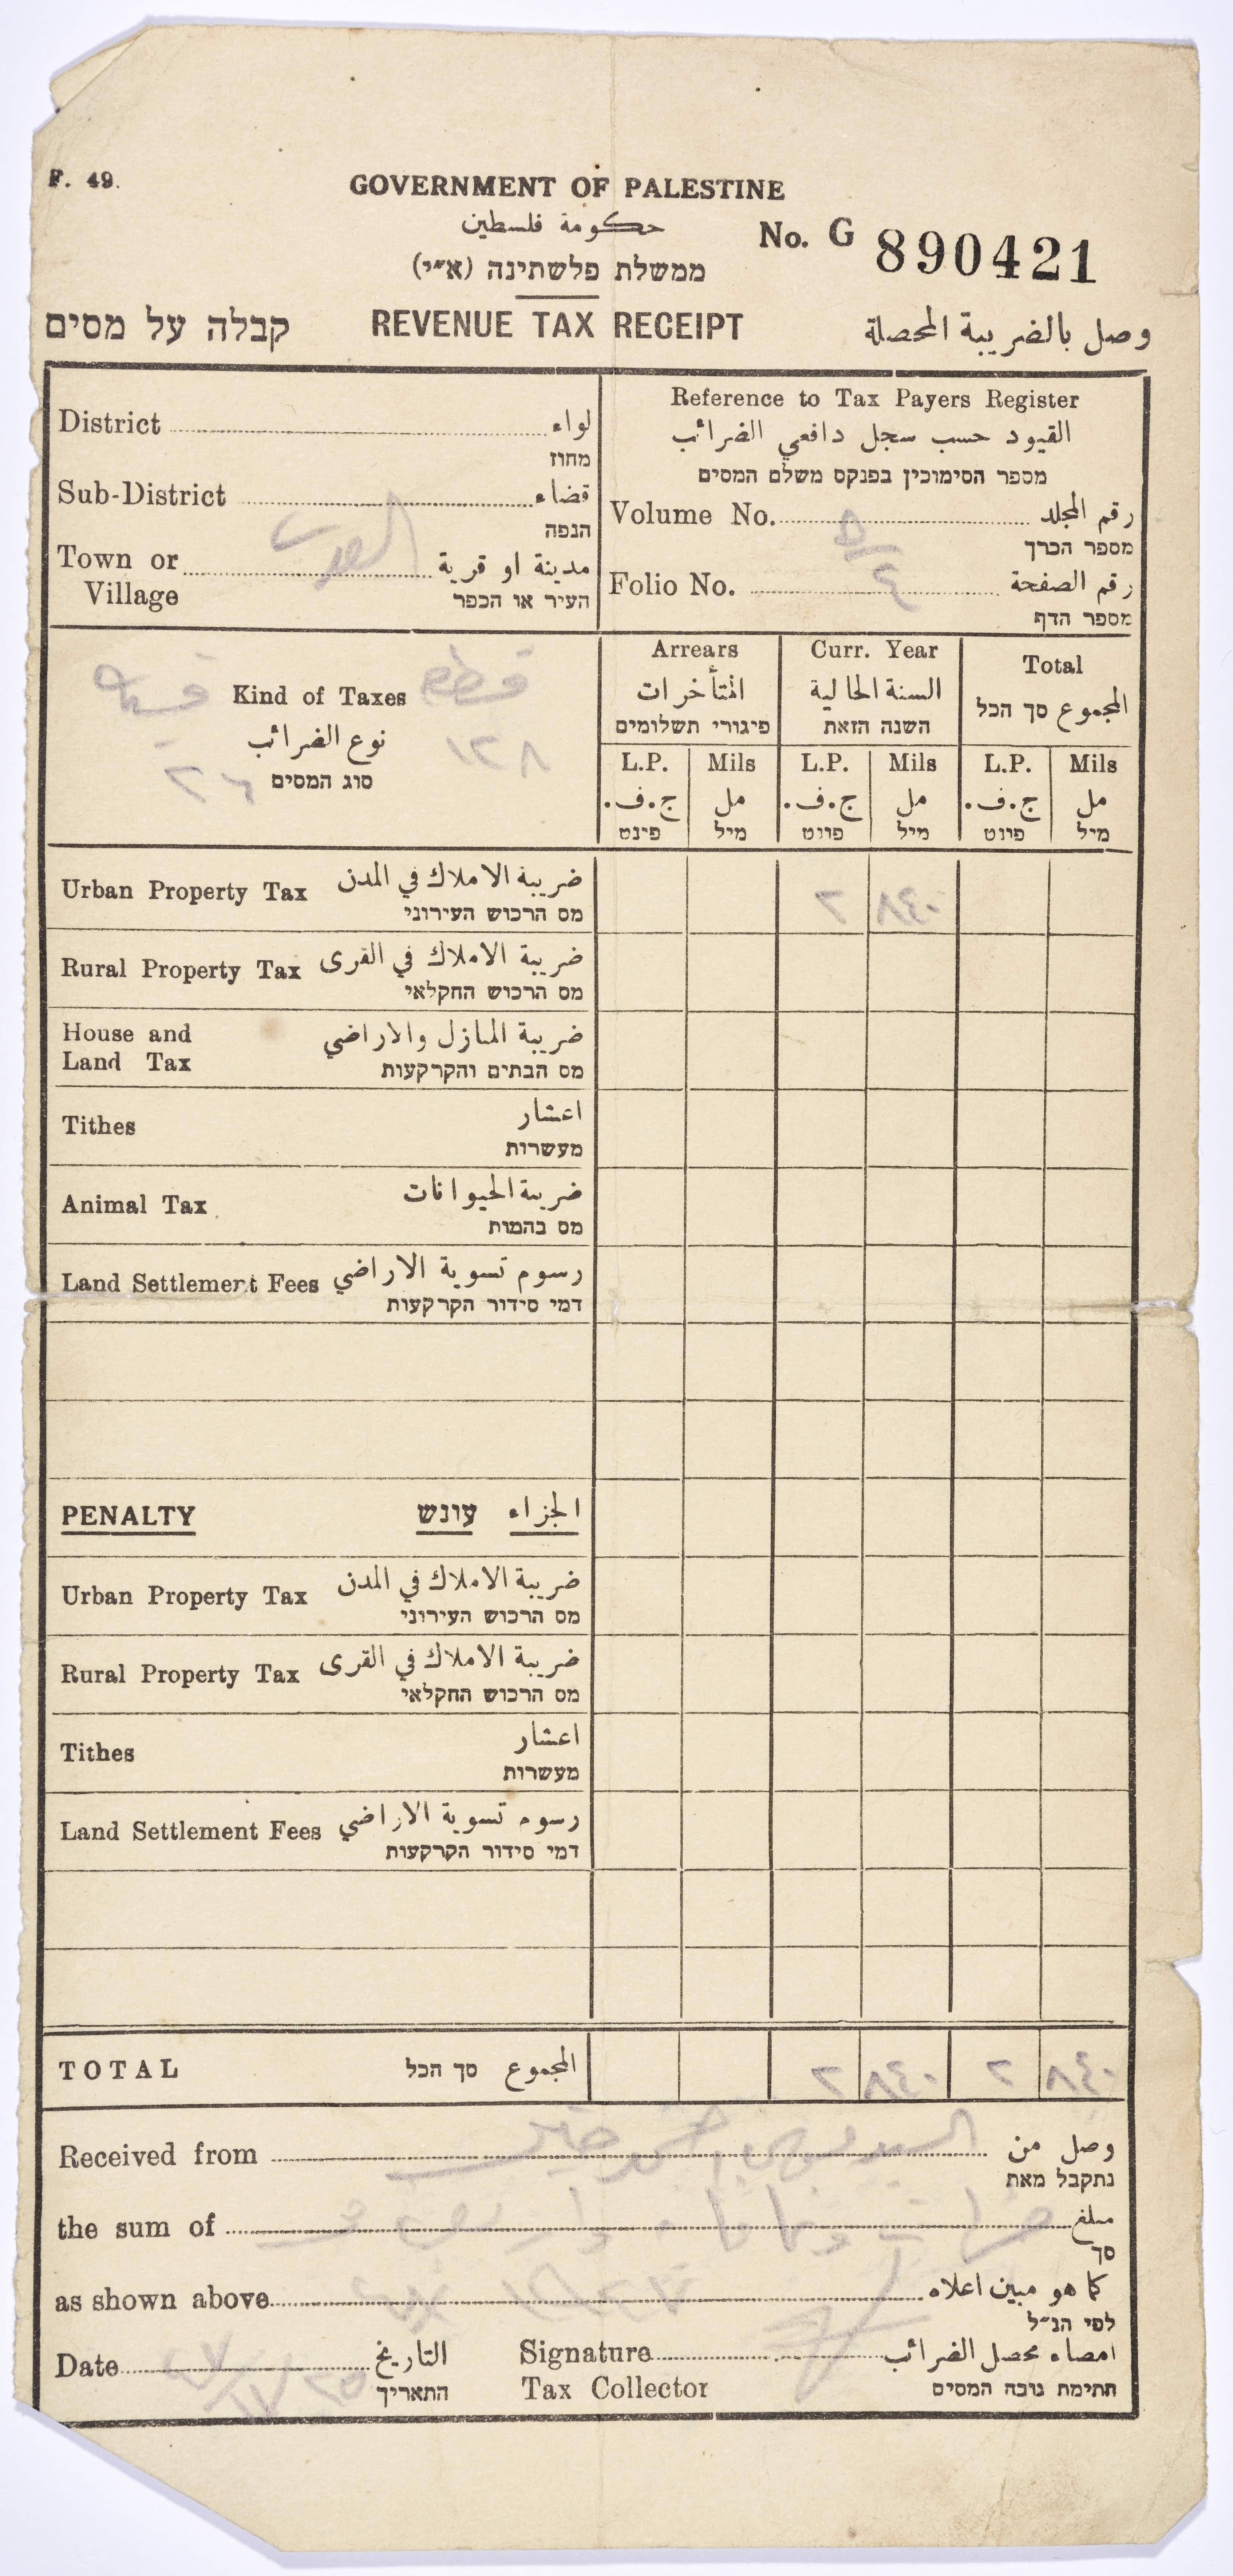 F. 49.
GOVERNMENT OF PALESTINE
حكومة فلسطين
ממשלת פלשתינה (א״י)
No. G 890421
קבלה על מסים REVENUE TAX RECEIPT وصل بالضريبة المحصلة
District لواء
מחוז
Sub-District قضاء
הנפה
Town or Village مدينة او قرية
העיר או הכפר
القدس
Reference to Tax Payers Register
القيود حسب سجل دافعي الضرائب
מספר הסימוכין בפנקס משלם המסים
Volume No. رقم المجلد
מספר הכרך
Folio No. ٤ رقم الصفحة
מספר הדף
Kind of Taxes قطعة
نوع الضرائب ١٢٨
סוג המסים ٢٦
Arrears Curr. Year Total
المتأخرات السنة الحالية المجموع סך הכל
פיגורי תשלומים השנה הזאת
L.P. Mils L.P. Mils L.P. Mils
ج.ف. مل ج.ف. مل ج.ف. مل
פינט מיל פווט מיל פווט מיל
Urban Property Tax ضريبة الاملاك في المدن ٢ ٨٤٠
מס הרכוש העירוני
Rural Property Tax ضريبة الاملاك في القرى
מס הרכוש החקלאי
House and Land Tax ضريبة المنازل والاراضي
מס הבתים והקרקעות
Tithes اعشار
מעשרות
Animal Tax ضريبة الحيوانات
מס בהמות
Land Settlement Fees رسوم تسوية الاراضي
דמי סידור הקרקעות
PENALTY עונש الجزاء
Urban Property Tax ضريبة الاملاك في المدن
מס הרכוש העירוני
Rural Property Tax ضريبة الاملاك في القرى
מס הרכוש החקלאי
Tithes اعشار
מעשרות
Land Settlement Fees رسوم تسوية الاراضي
דמי סידור הקרקעות
TOTAL סך הכל المجموع ٢ ٨٤٠ ٢ ٨٤٠
Received from وصل من
נתקבל מאת
the sum of مبلغ
סך
as shown above كما هو مبين اعلاه
לפי הנ״ל
Date التاريخ Signature امضاء محصل الضرائب
התאריך Tax Collector חתימת גובה המסים